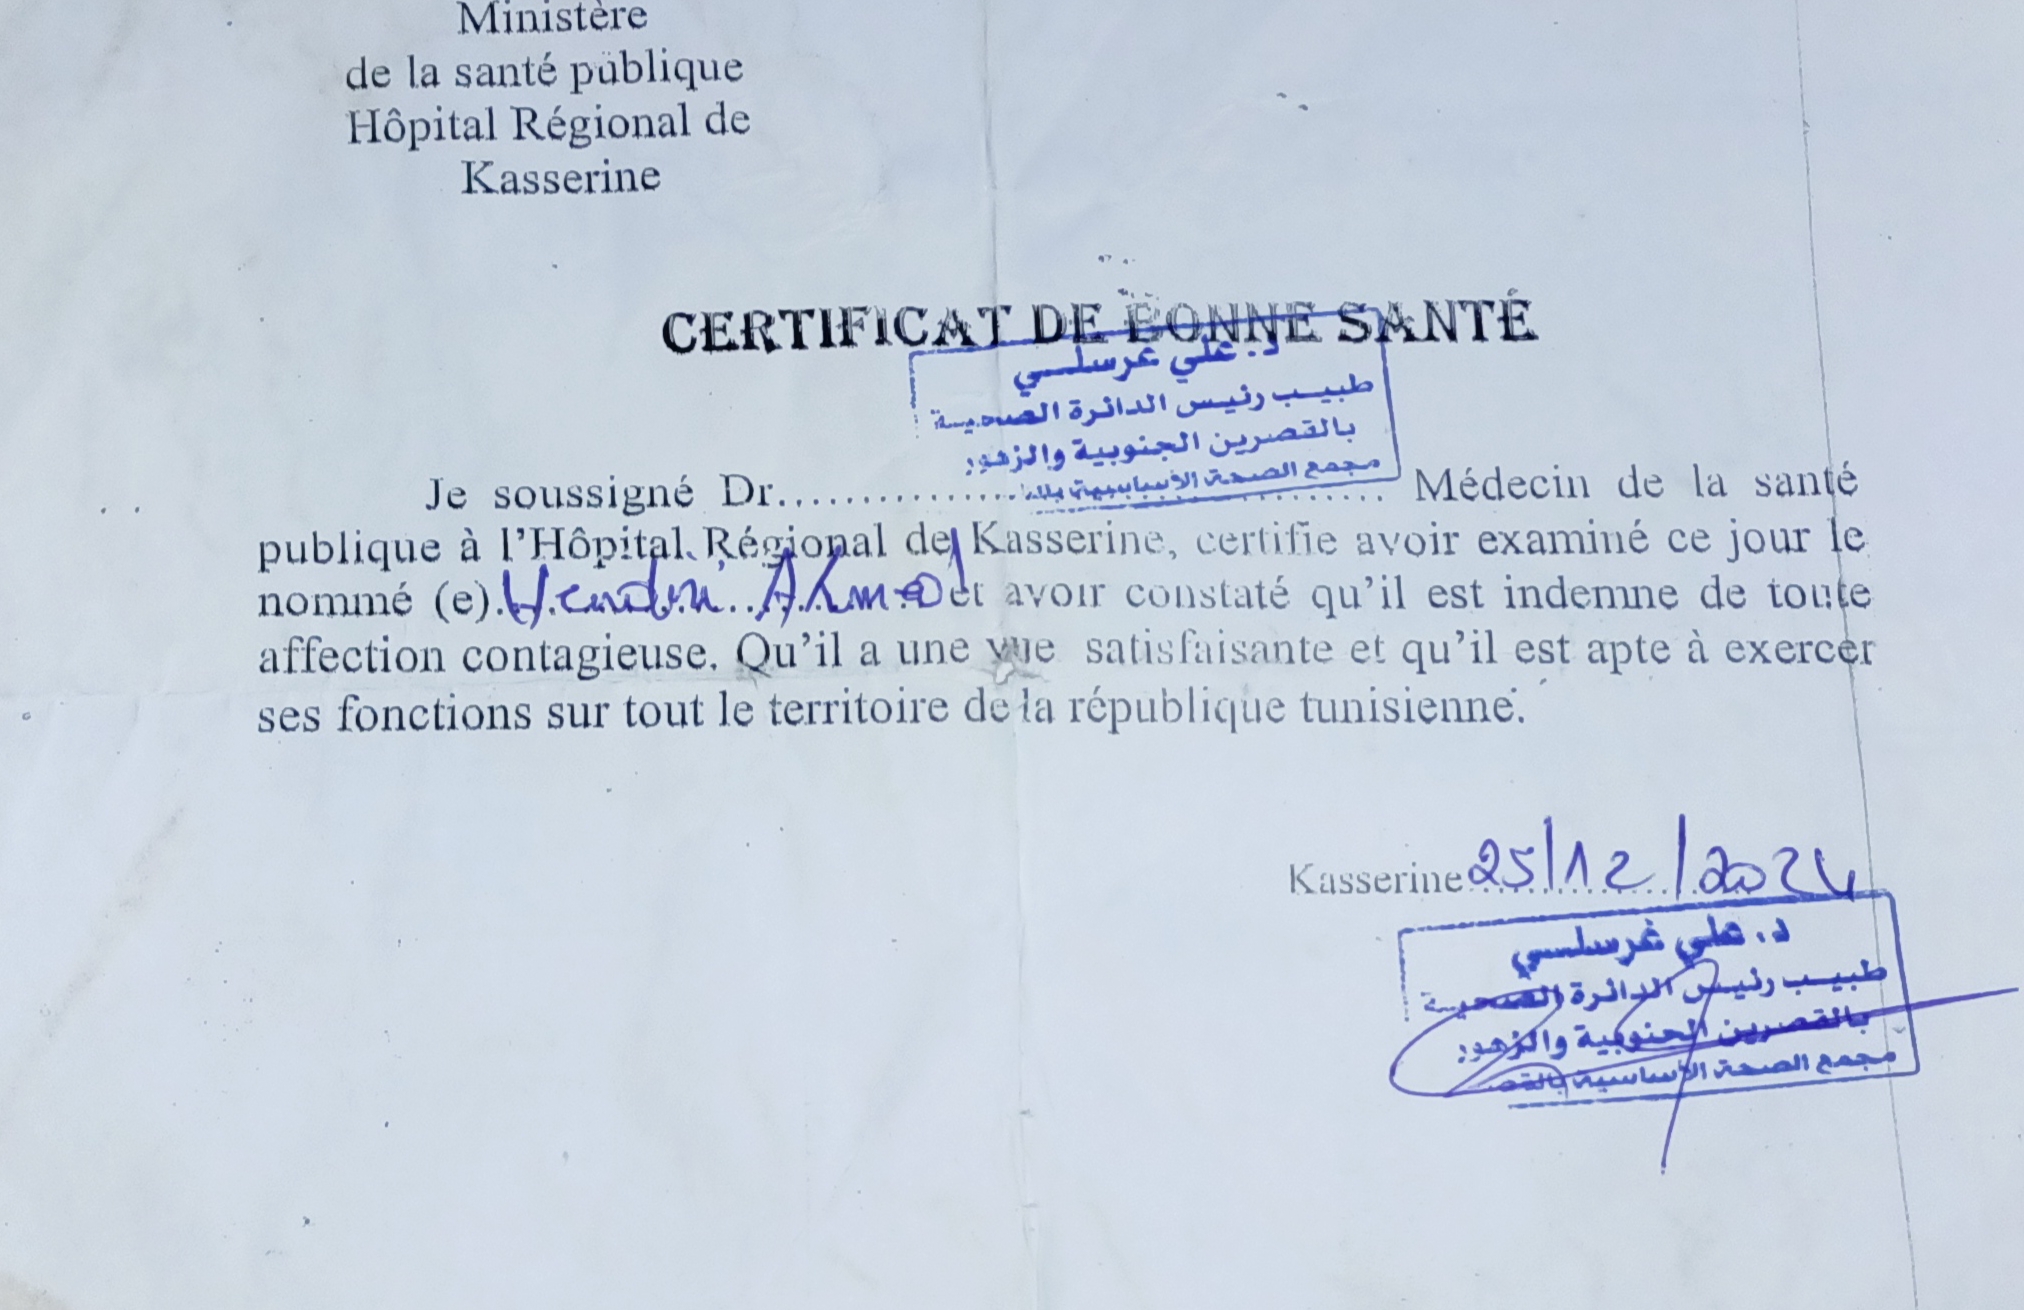 Ministère
de la santé publique
Hôpital Régional de
Kasserine
CERTIFICAT DE BONNE SANTÉ
د. علي غرسلي
طبيب رئيس الدائرة الصحية
بالقصرين الجنوبية والزهور
مجمع الصحة الأساسية
Je soussigné Dr................................................ Médecin de la santé
publique à l'Hôpital Régional de Kasserine, certifie avoir examiné ce jour le
nommé (e) Ahmed et avoir constaté qu'il est indemne de toute
affection contagieuse. Qu'il a une vue satisfaisante et qu'il est apte à exercer
ses fonctions sur tout le territoire de la république tunisienne.
Kasserine 25/12/2024
د. علي غرسلي
طبيب رئيس الدائرة الصحية
بالقصرين الجنوبية والزهور
مجمع الصحة الأساسية